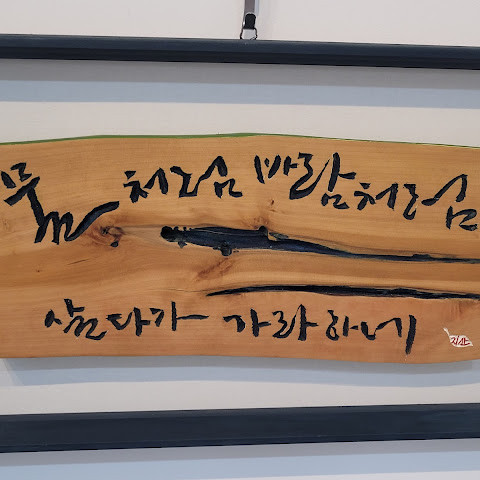 물처럼 바람처럼
살다가 가라하네
지산